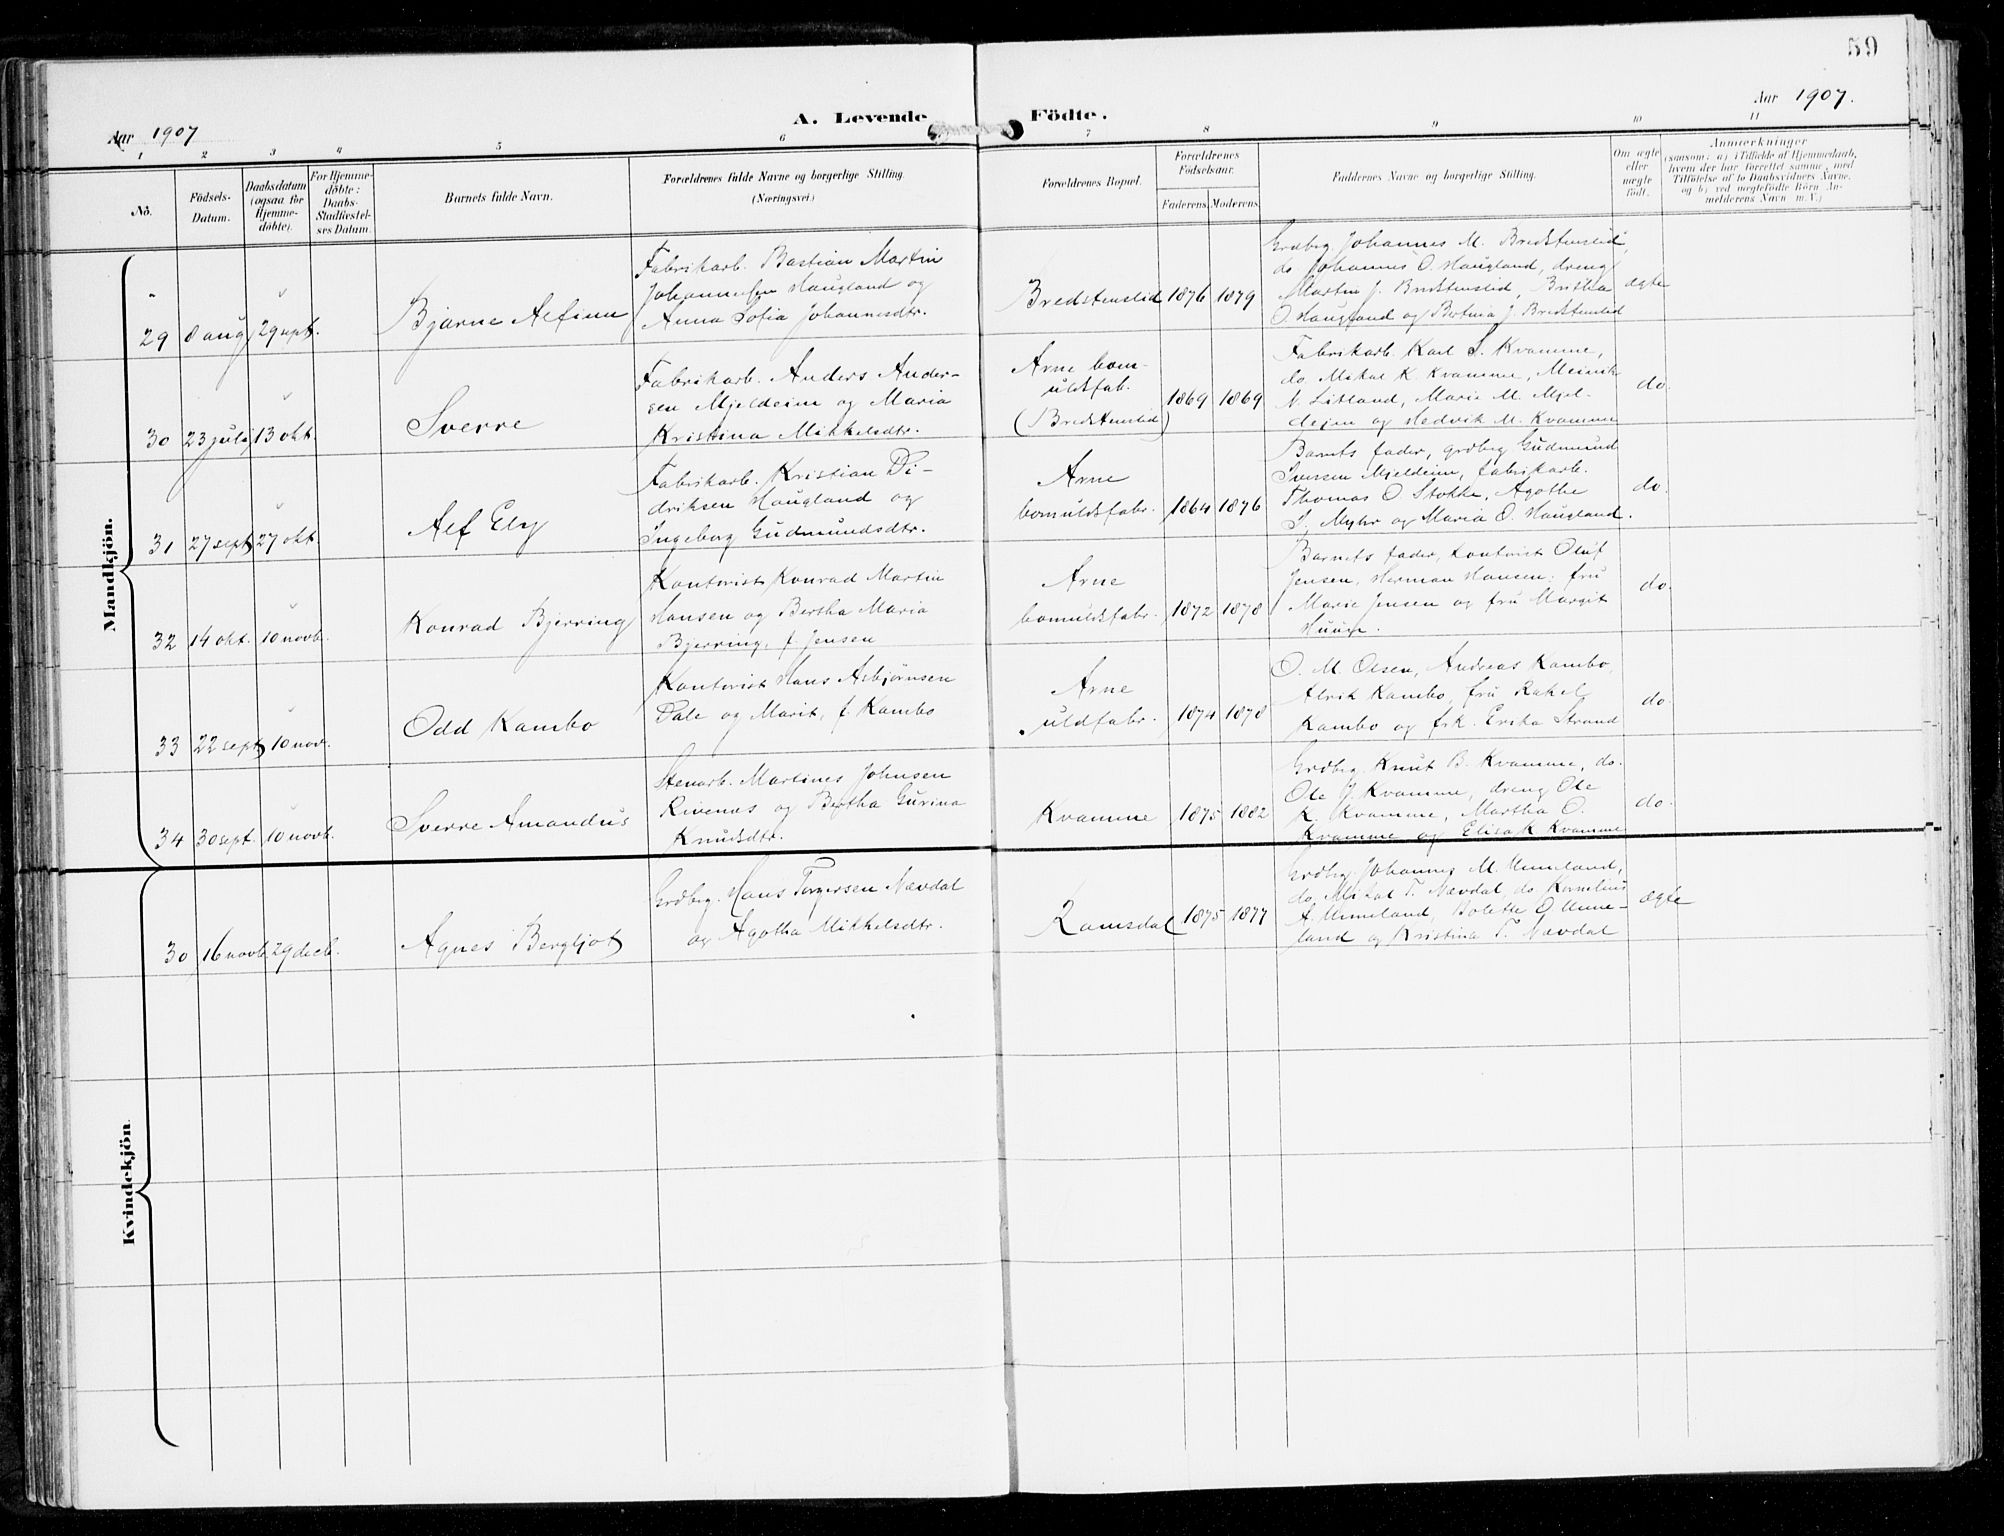 59
Aar 1907
A. Levende Födte.
Aar 1907.
1 2 3 4 5 6 7 8 9 10 11
No.
Födsels-
Datum.
Daabsdatum
(ogsaa for
Hjemme-
döbte).
For Hjemme-
döbte:
Daabs-
Stadfæstel-
ses Datum.
Barnets fulde Navn.
Forældrenes fulde Navne og borgerlige Stilling
(Næringsvei.)
Forældrenes Bopæl.
Forældrenes
Födselsaar.
Faderens. Moderens.
Faddernes Navne og borgerlige Stilling.
Om ægte
eller
uægte
födt.
Anmærkninger
(saasom: a) i Tilfælde af Hjemmedaab,
hvem der har forrettet samme, med
Tilföielse af to Daabsvidners Navne,
og b) ved uægtefödte Börn An-
melderens Navn m. V.)
Mandkjön.
29 8 aug 29 sept.
Bjarne Alfinn
Fabrikarb. Bastian Martin
Johannesen Haugland og
Anna Sofia Johannesdtr.
Bredstenslid 1876 1879
Grdbrg. Johannes M. Bredstenslid,
do Johannes O. Haugland, dreng
Martin J. Bredstenslid, Britha
O. Haugland og Bertina J. Bredstenslid
ægte
30 23 juli 13 okt.
Sverre
Fabrikarb. Anders Ander-
sen Mjeldeim og Maria
Kristina Mikkelsdtr.
Arne bom-
uldsfab.
(Bredstenslid)
1869 1869
Fabrikarb. Karl S. Kvamme,
do. Mikal K. Kvamme, Meinik
N Lisland, Marie M. Mjel-
deim og Hedvik M. Kvamme
do.
31 27 sept 27 okt.
Alf Ely
Fabrikarb. Kristian Di-
driksen Haugland og
Ingeborg Gudmundsdtr.
Arne
bomuldsfabr. 1864 1876
Barnets fader, grdbrg Gudmund
Iversen Mjeldeim, fabrikarb.
Thomas O. Stokke, Agothe
S. Myhr og Maria O. Haugland.
do.
32 14 okt. 10 novb.
Konrad Bjerring
Kontorist Konrad Martin
Hansen og Bertha Maria
Bjerring, f. Jensen
Arne
bomuldsfabr. 1872 1878
Barnets fader, kontorist Oluf
Jensen, Herman Hansen, fru
Marie Jensen og fru Margit
do.
33 22 sept 10 nov.
Odd Kambo
Kontorist Hans Asbjørnsen
Dale og Marit, f. Kambo
Arne
uldfabr. 1874 1878
O. M. Olsen, Andreas Kambo,
Alrik Kambo, fru Rakel
Kambo og frk. Erika Strand
do.
34 30 sept. 10 novb.
Sverre Amandus
Stenarb. Martines Johnsen
Rivenes og Bertha Gurina
Knudsdtr.
Kvamme 1875 1882
Grdbrg. Knut B. Kvamme, do.
Ole J. Kvamme, dreng Ole
K. Kvamme, Martha O.
Kvamme og Elisa K Kvamme
do.
Kvindekjön.
30 16 novb. 29 decb.
Agnes Bergljot
Grdbrg. Hans Torgersen Nævdal
og Agotha Mikkelsdtr.
Ramsdal 1875 1877
Grdbrg. Johannes M. Unneland,
do. Mikal T. Nævdal do. Kornelius
A. Unneland, Bolette O Unne-
land og Kristina T. Nævdal
ægte